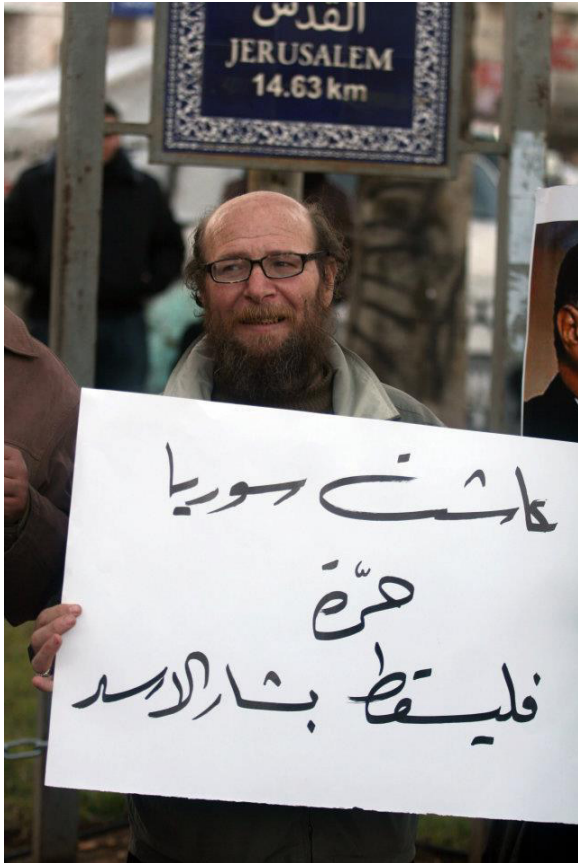 القدس
JERUSALEM
14.63 km
عاشت سوريا
حرّة
فليسقط بشار الاسد